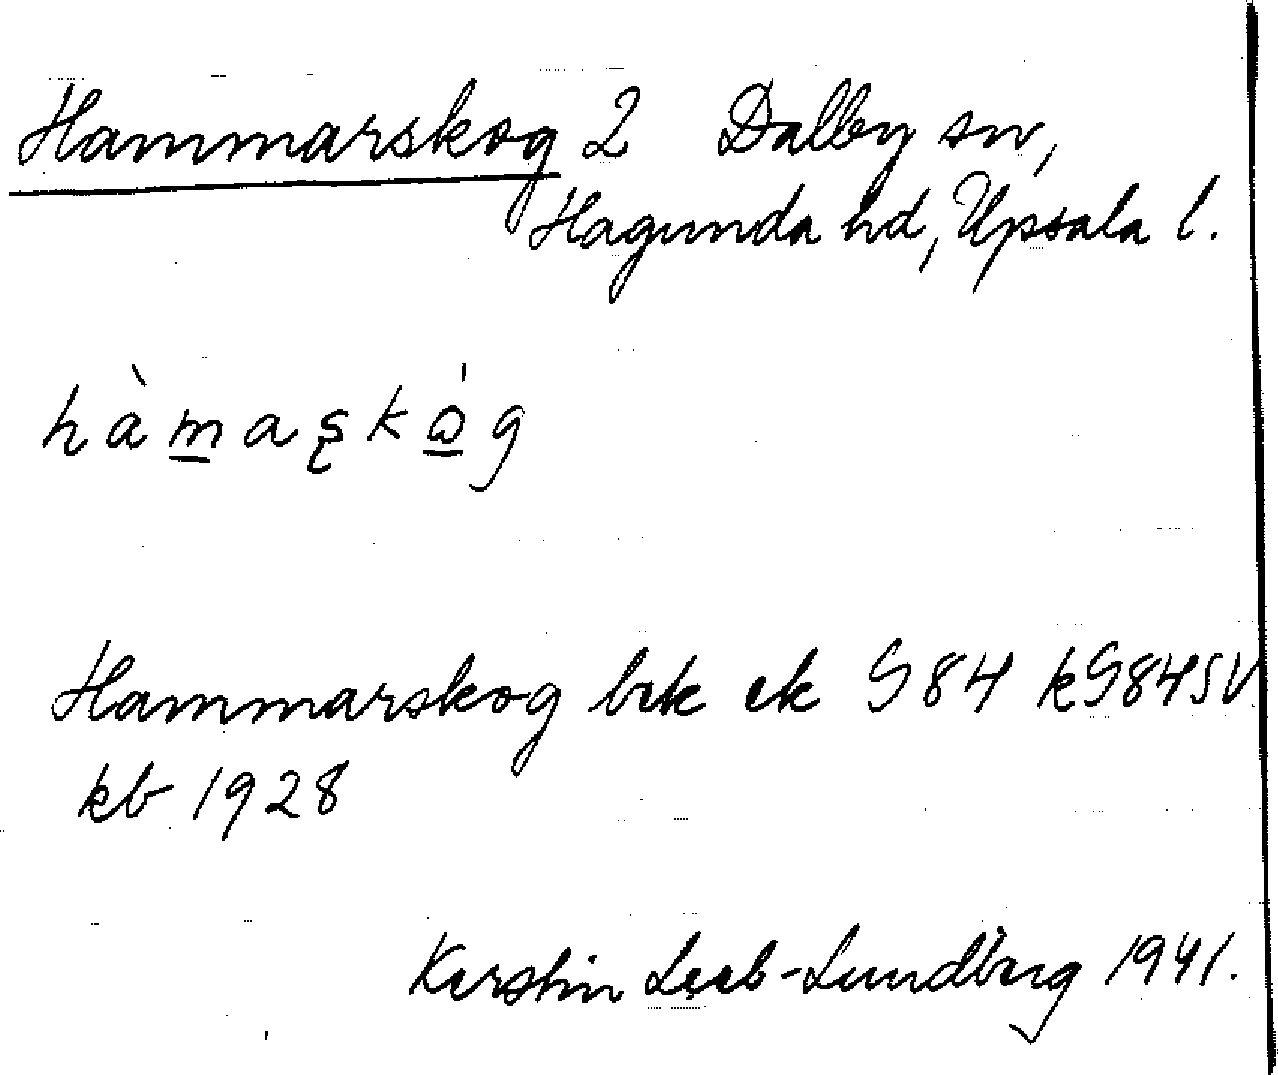 Hammarskog 2 Dalby sn,
Hagunda hd, Upsala l.
hàma̱şkώ̱g
Hammarskog bek ek S84 kS84SV
kb 1928
Kerstin Leeb-Lundberg 1941.